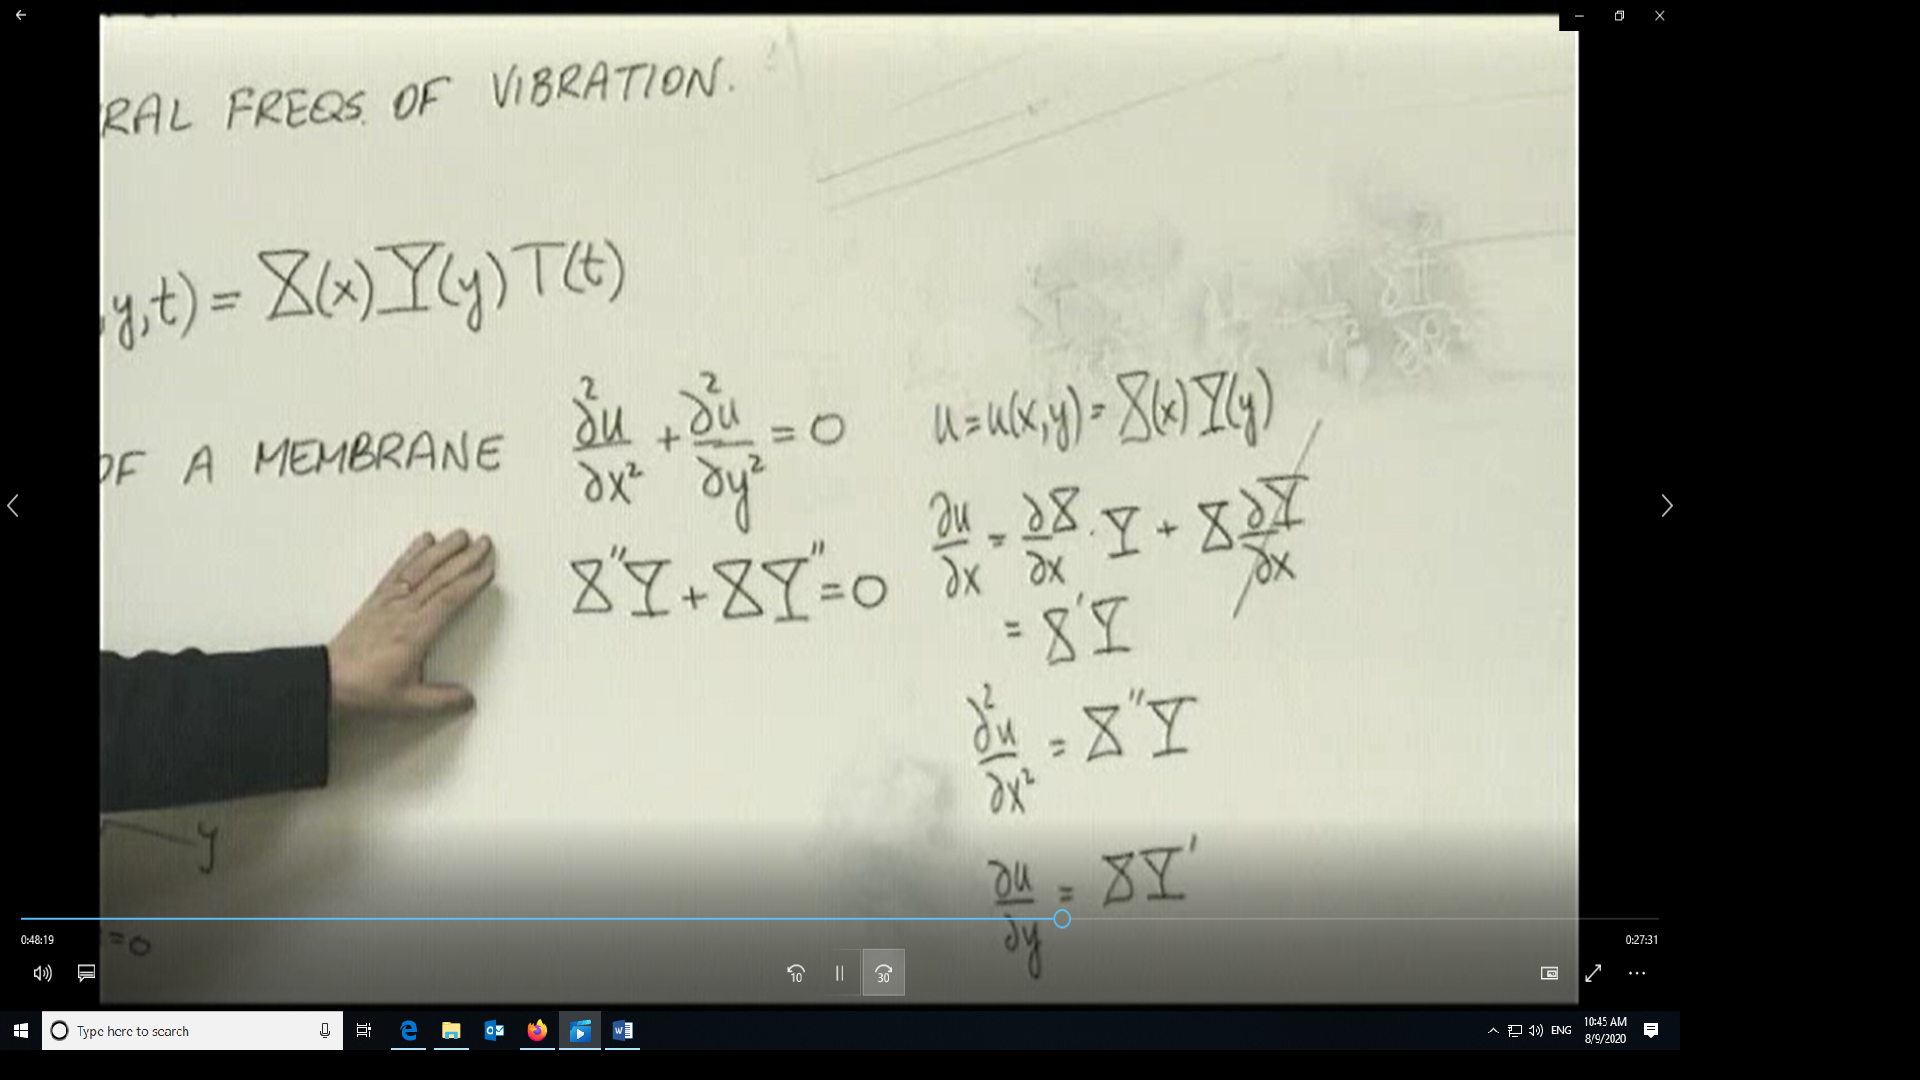 RAL FREQS. OF VIBRATION.
,y,t) = X(x)Y(y)T(t)
OF A MEMBRANE
∂²u/∂x² + ∂²u/∂y² = 0
X''Y + XY'' = 0
u = u(x,y) = X(x)Y(y)
∂u/∂x = ∂X/∂x · Y + X ∂Y/∂x
= X'Y
∂²u/∂x² = X''Y
∂u/∂y = XY'
y
=0
0:48:19
0:27:31
10
30
Type here to search
ENG
10:45 AM
8/9/2020